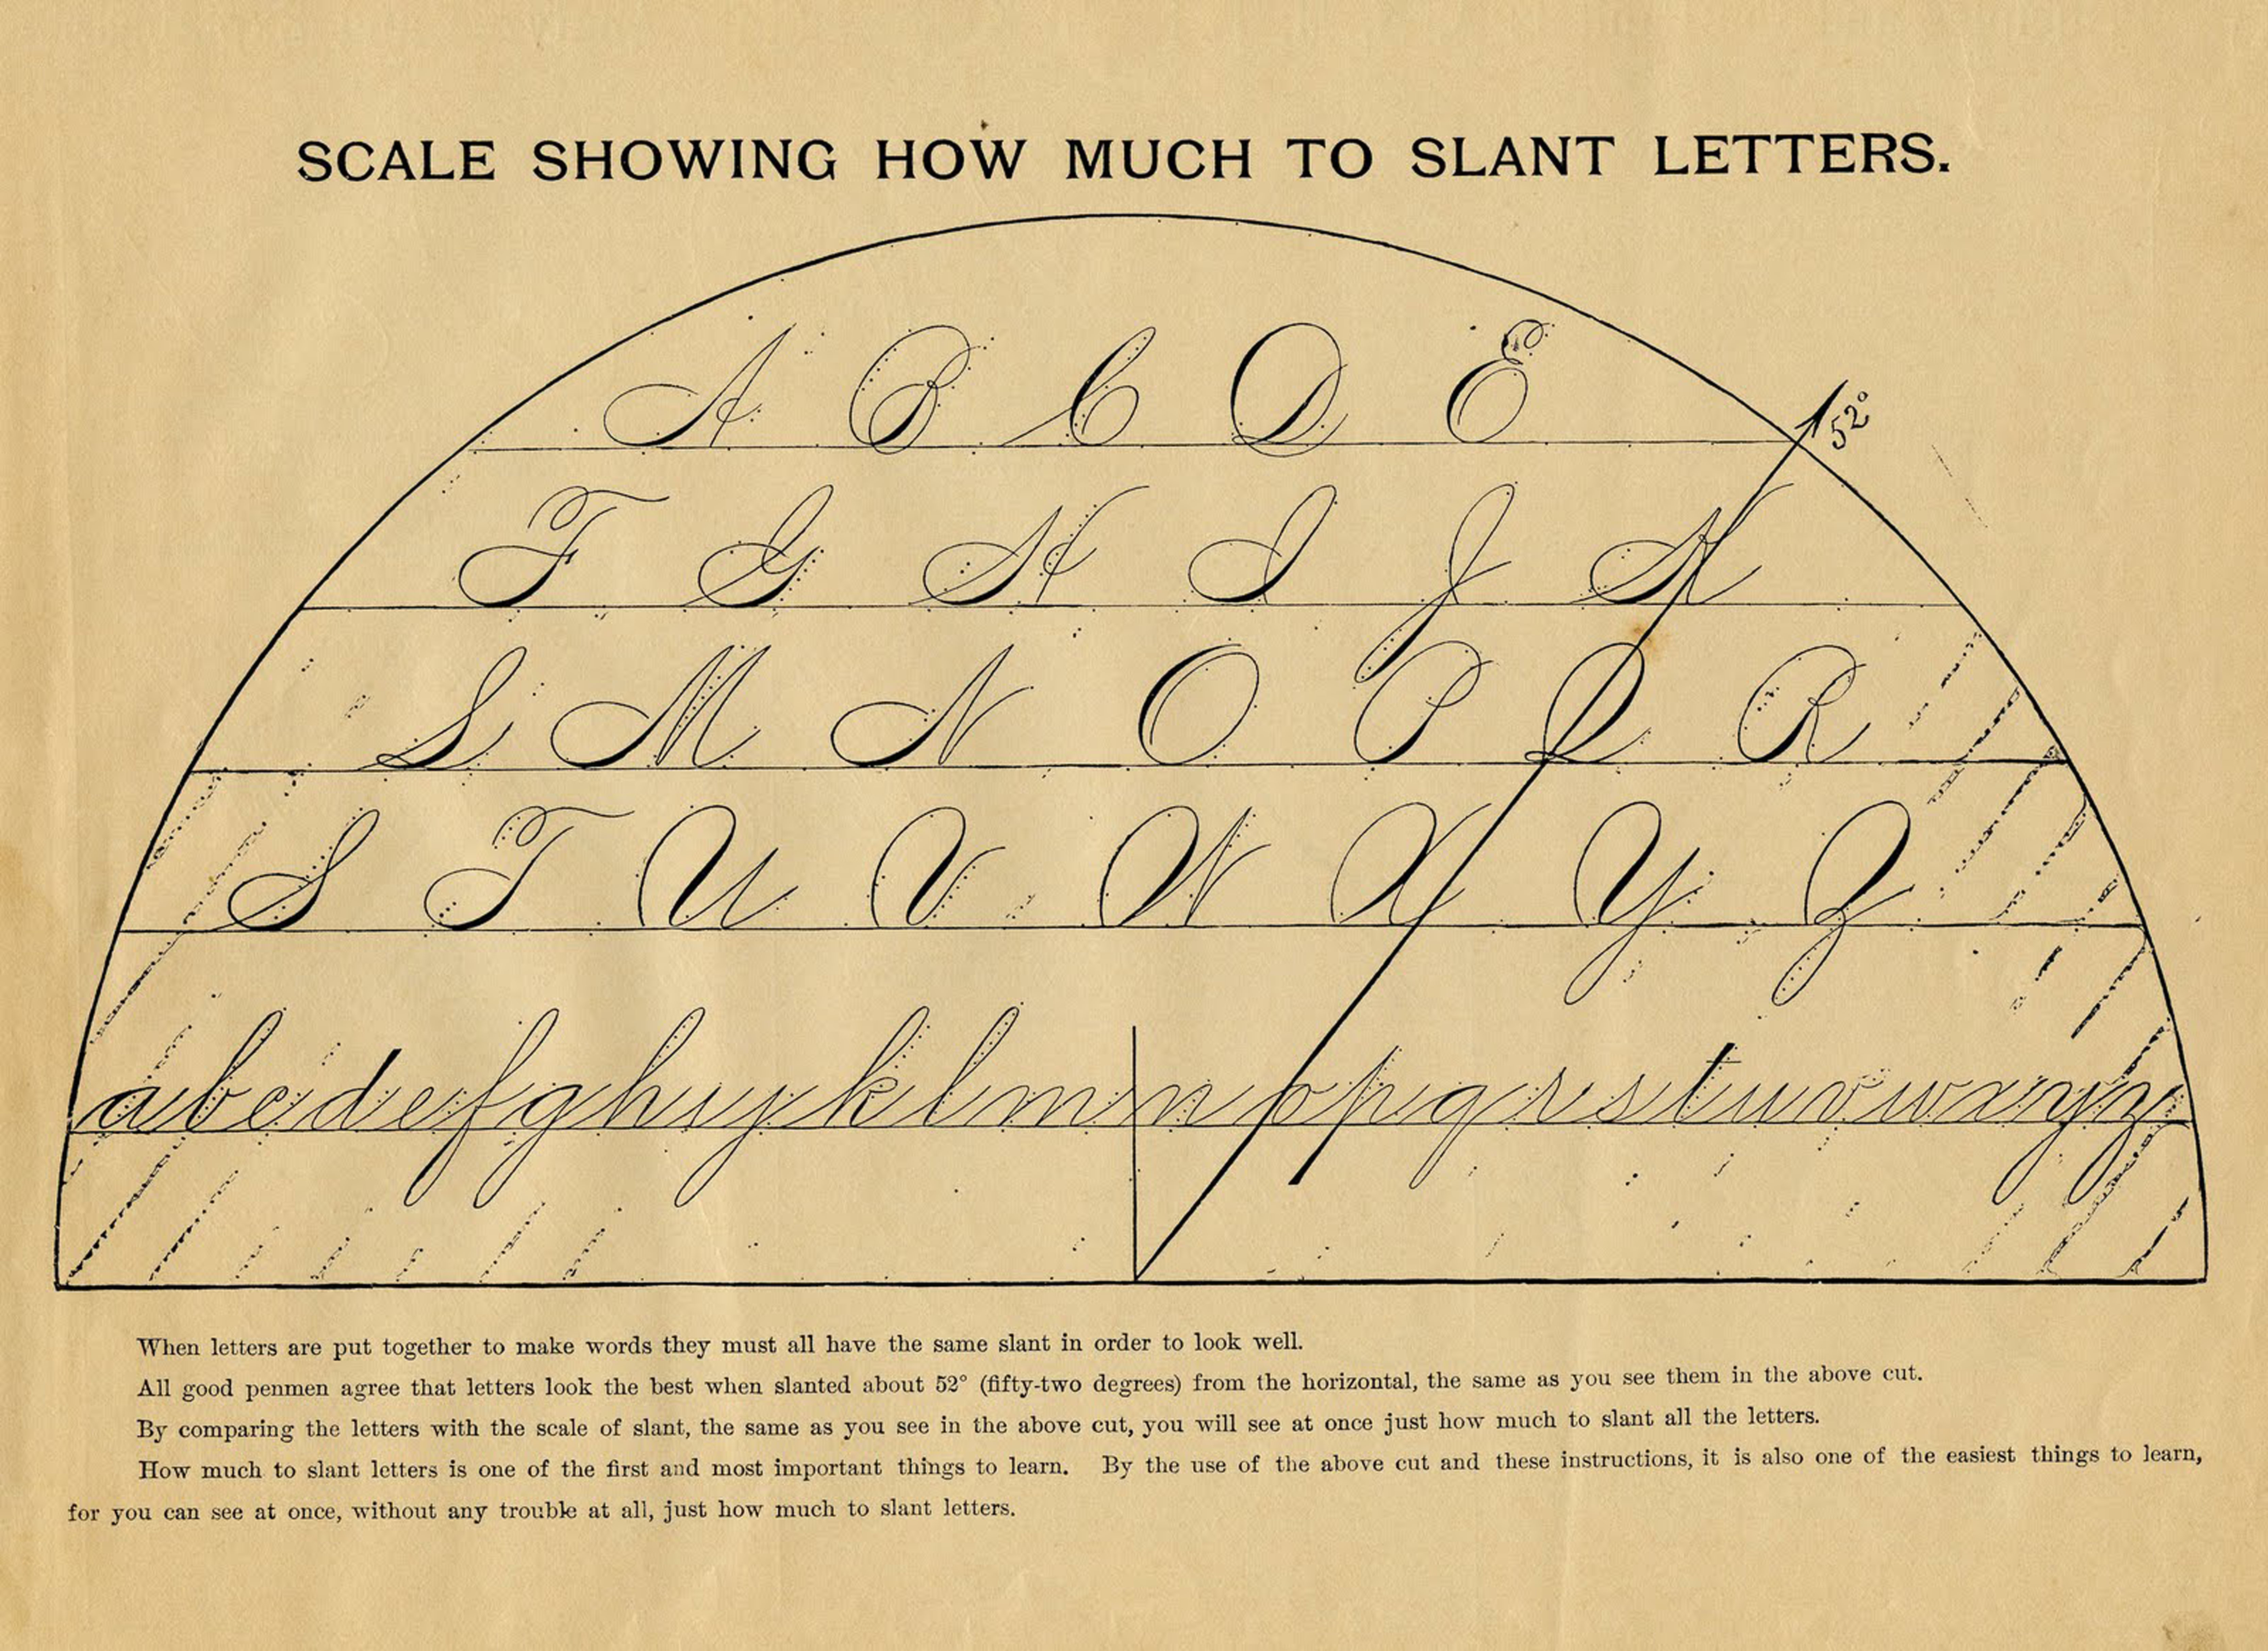 SCALE SHOWING HOW MUCH TO SLANT LETTERS.
A B C D E
52°
F G H I J K
L M N O P Q R
S T U V W X Y Z
a b c d e f g h i j k l m n o p q r s t u v w x y z
When letters are put together to make words they must all have the same slant in order to look well.
All good penmen agree that letters look the best when slanted about 52° (fifty-two degrees) from the horizontal, the same as you see them in the above cut.
By comparing the letters with the scale of slant, the same as you see in the above cut, you will see at once just how much to slant all the letters.
How much to slant letters is one of the first and most important things to learn. By the use of the above cut and these instructions, it is also one of the easiest things to learn,
for you can see at once, without any trouble at all, just how much to slant letters.